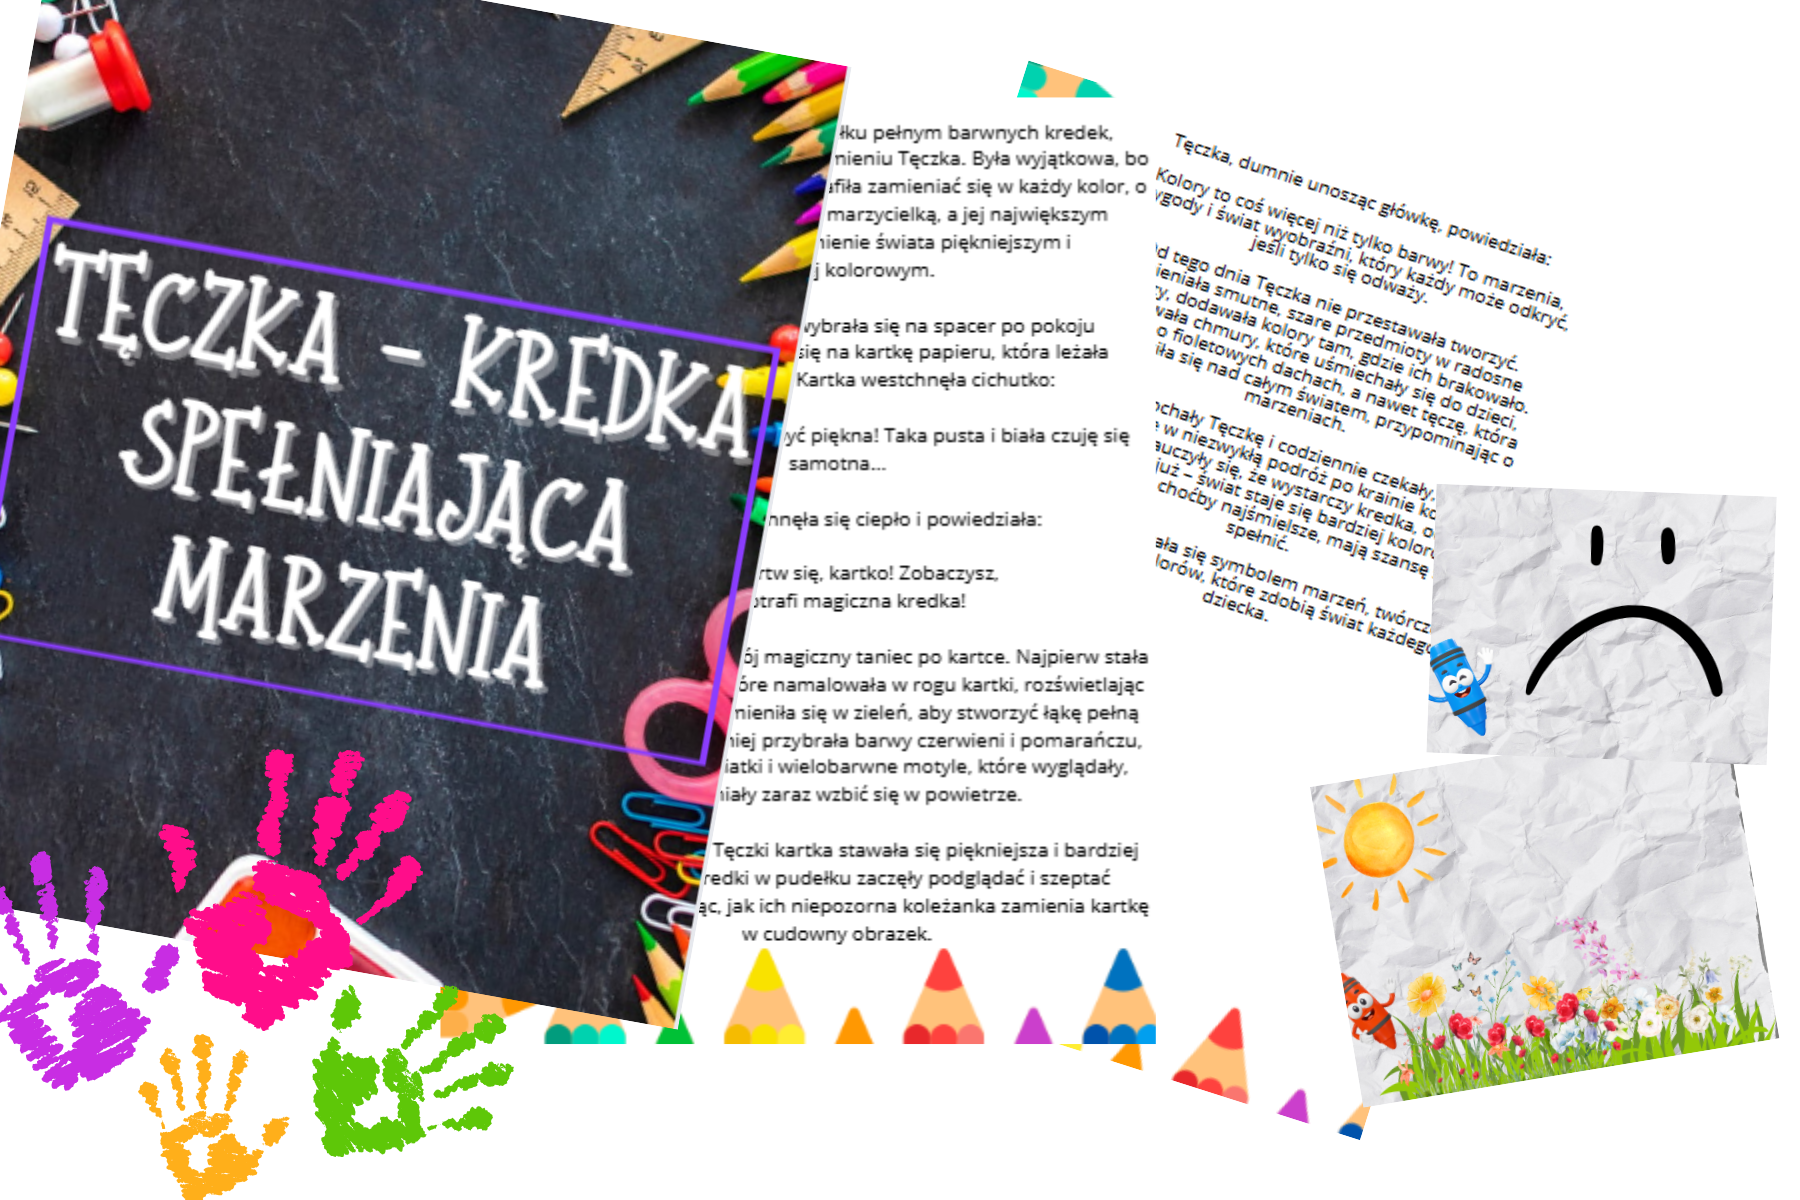 TĘCZKA – KREDKA
SPEŁNIAJĄCA
MARZENIA
pełnym barwnych kredek,
Tęczka. Była wyjątkowa, bo
zamieniać się w każdy kolor, o
marzycielką, a jej największym
świata piękniejszym i
j kolorowym.
wybrała się na spacer po pokoju
się na kartkę papieru, która leżała
Kartka westchnęła cichutko:
yć piękna! Taka pusta i biała czuję się
samotna...
się ciepło i powiedziała:
się, kartko! Zobaczysz,
magiczna kredka!
ój magiczny taniec po kartce. Najpierw stała
óre namalowała w rogu kartki, rozświetlając
mieniła się w zieleń, aby stworzyć łąkę pełną
niej przybrała barwy czerwieni i pomarańczu,
iatki i wielobarwne motyle, które wyglądały,
miały zaraz wzbić się w powietrze.
Tęczki kartka stawała się piękniejsza i bardziej
redki w pudełku zaczęły podglądać i szeptać
ąc, jak ich niepozorna koleżanka zamienia kartkę
w cudowny obrazek.
Tęczka, dumnie unosząc główkę, powiedziała:
Kolory to coś więcej niż tylko barwy! To marzenia,
ygody i świat wyobraźni, który każdy może odkryć,
jeśli tylko się odważy.
d tego dnia Tęczka nie przestawała tworzyć.
ieniała smutne, szare przedmioty w radosne
y, dodawała kolory tam, gdzie ich brakowało.
wała chmury, które uśmiechały się do dzieci,
o fioletowych dachach, a nawet tęczę, która
iła się nad całym światem, przypominając o
marzeniach.
ochały Tęczkę i codziennie czekały,
w niezwykłą podróż po krainie ko
auczyły się, że wystarczy kredka, o
już – świat staje się bardziej kolor
choćby najśmielsze, mają szansę
spełnić.
ała się symbolem marzeń, twórcz
lorów, które zdobią świat każdego
dziecka.